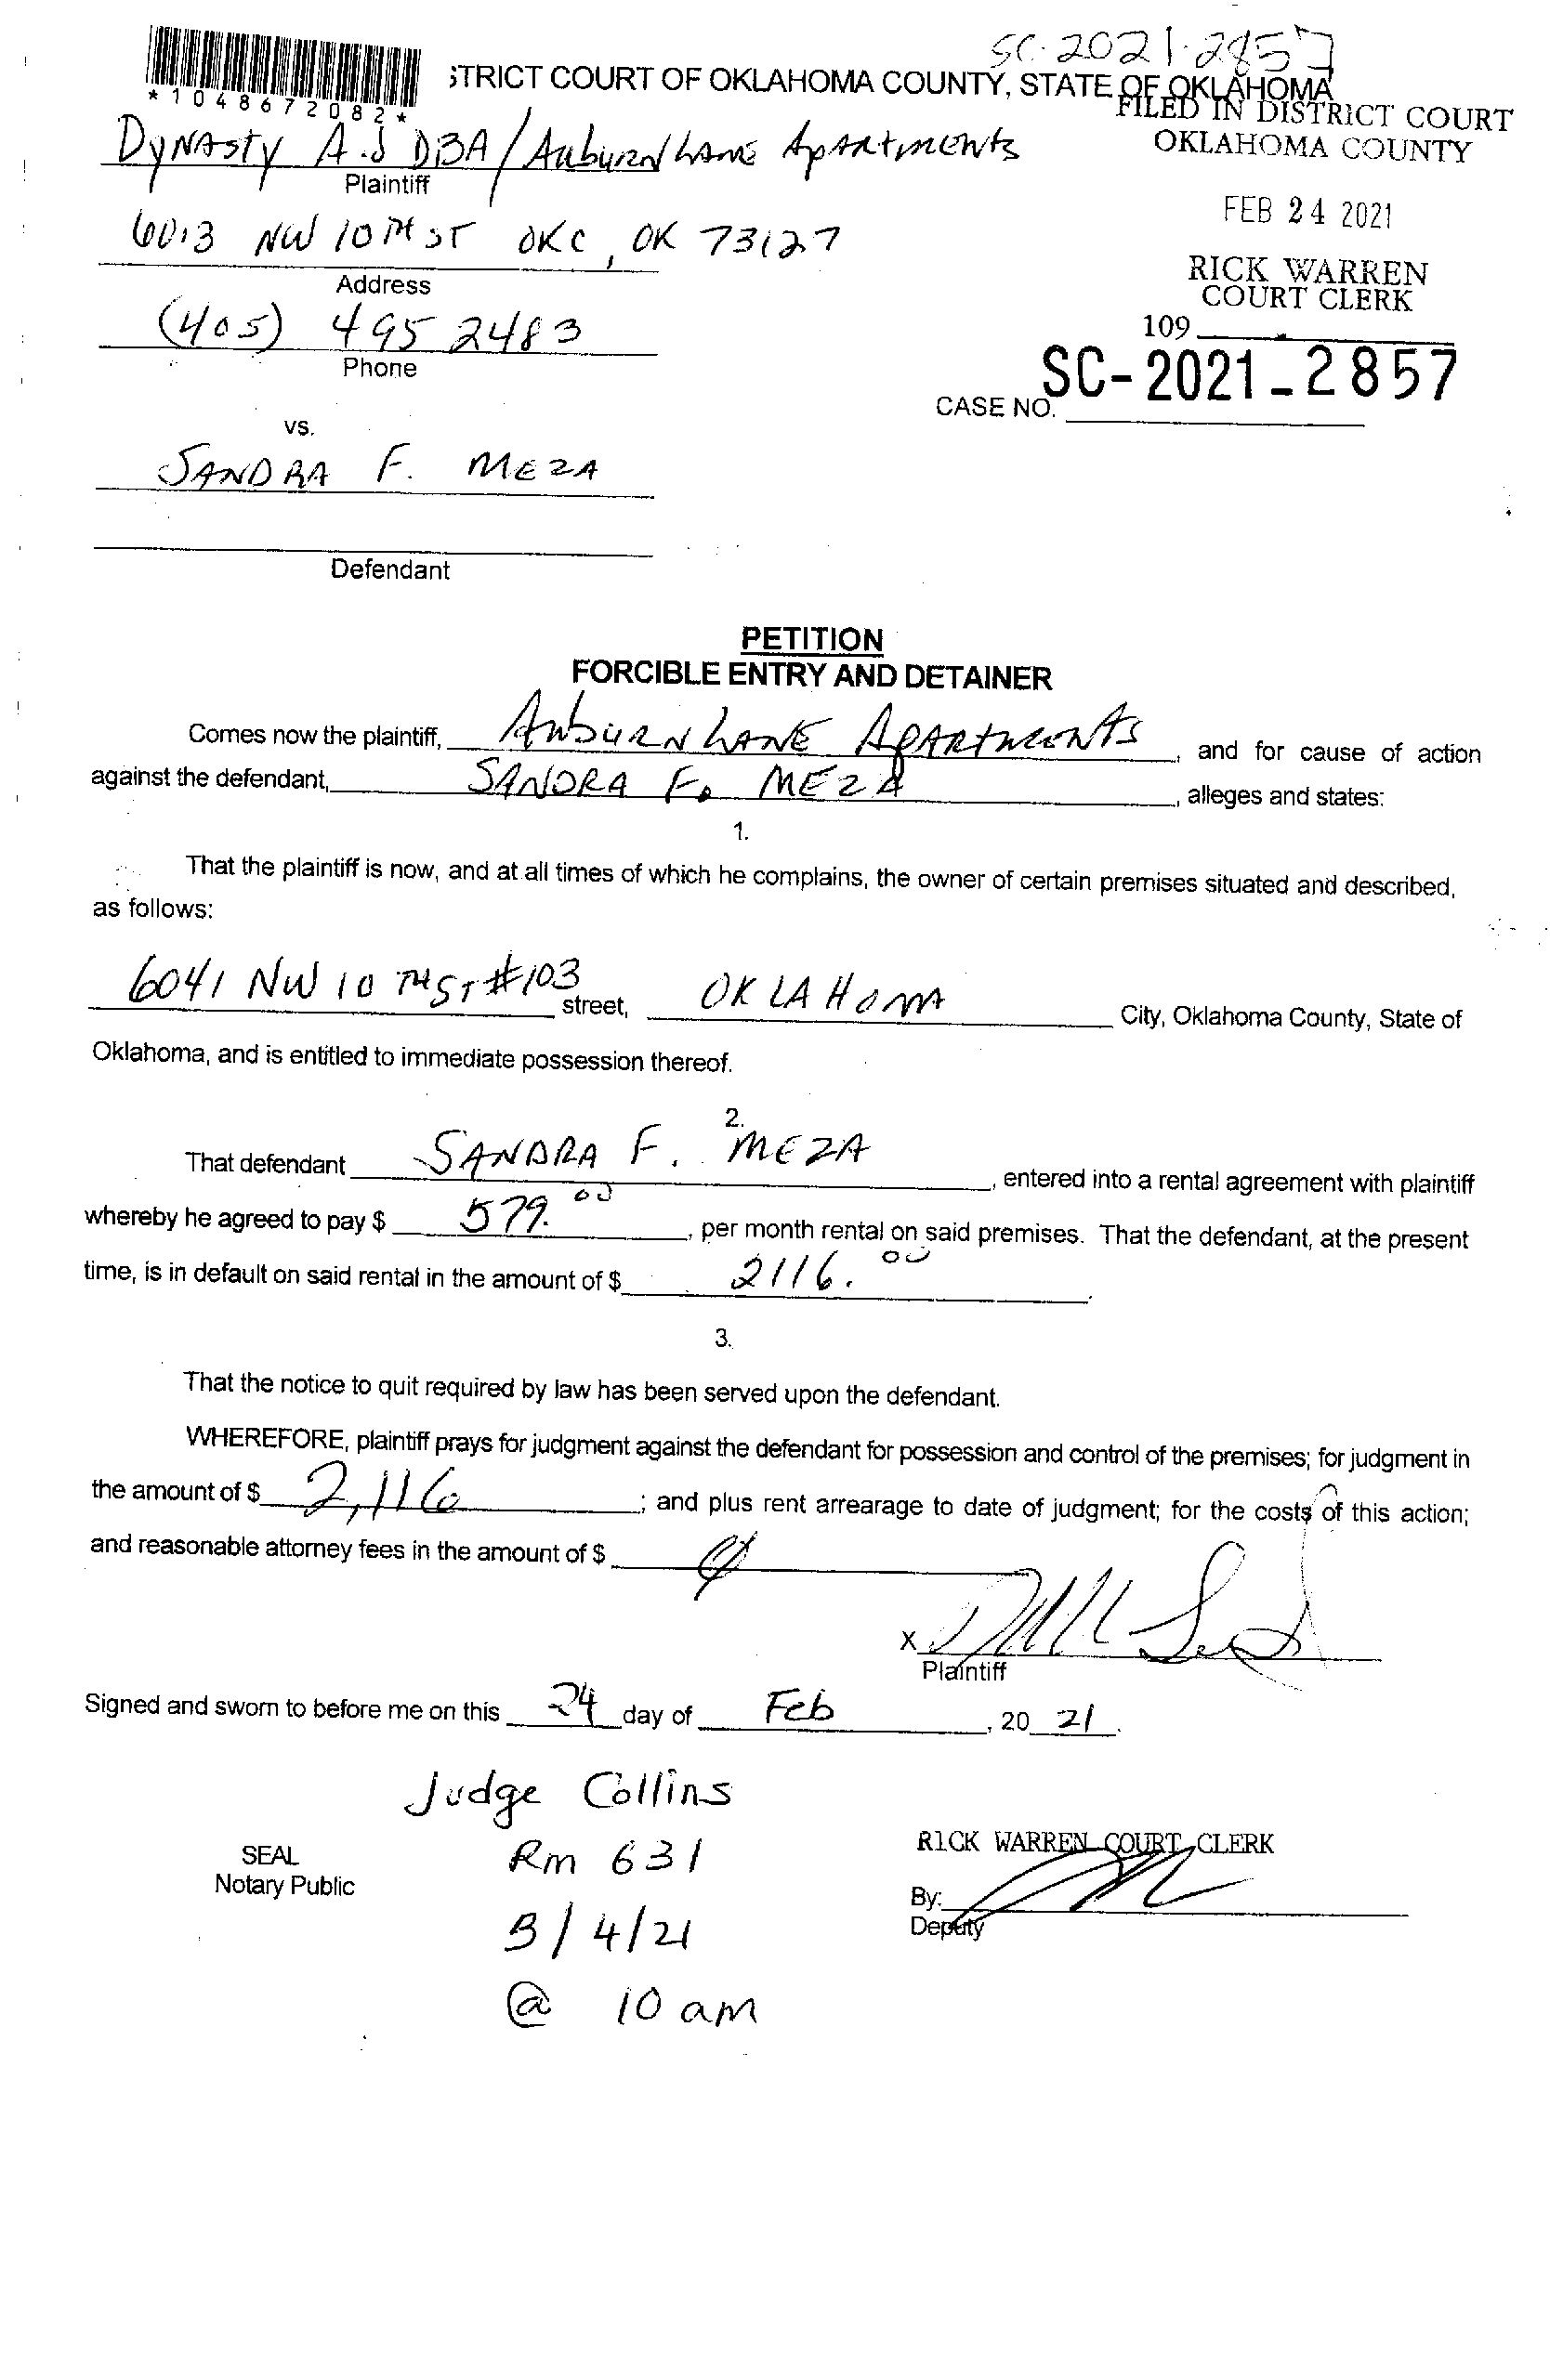 SC-2021-2857
STRICT COURT OF OKLAHOMA COUNTY, STATE OF OKLAHOMA
*1048672082*
FILED IN DISTRICT COURT
OKLAHOMA COUNTY
DYNASTY A.J DBA/Auburn LANE Apartments
Plaintiff
FEB 24 2021
6013 NW 10TH ST OKC, OK 73127
Address
RICK WARREN
COURT CLERK
(405) 495 2483
Phone
109
SC-2021-2857
CASE NO.
vs.
SANDRA F. MEZA
Defendant
PETITION
FORCIBLE ENTRY AND DETAINER
Comes now the plaintiff, Auburn LANE Apartments, and for cause of action
against the defendant, SANDRA F. MEZA, alleges and states:
1.
That the plaintiff is now, and at all times of which he complains, the owner of certain premises situated and described,
as follows:
6041 NW 10 TH ST #103 street, OKLAHOMA City, Oklahoma County, State of
Oklahoma, and is entitled to immediate possession thereof.
2.
That defendant SANDRA F. MEZA, entered into a rental agreement with plaintiff
whereby he agreed to pay $ 579.00, per month rental on said premises. That the defendant, at the present
time, is in default on said rental in the amount of $ 2116.00.
3.
That the notice to quit required by law has been served upon the defendant.
WHEREFORE, plaintiff prays for judgment against the defendant for possession and control of the premises; for judgment in
the amount of $ 2,116; and plus rent arrearage to date of judgment; for the costs of this action;
and reasonable attorney fees in the amount of $
X
Plaintiff
Signed and sworn to before me on this 24 day of Feb, 20 21.
Judge Collins
Rm 631
3/4/21
@ 10 am
SEAL
Notary Public
RICK WARREN COURT CLERK
By:
Deputy